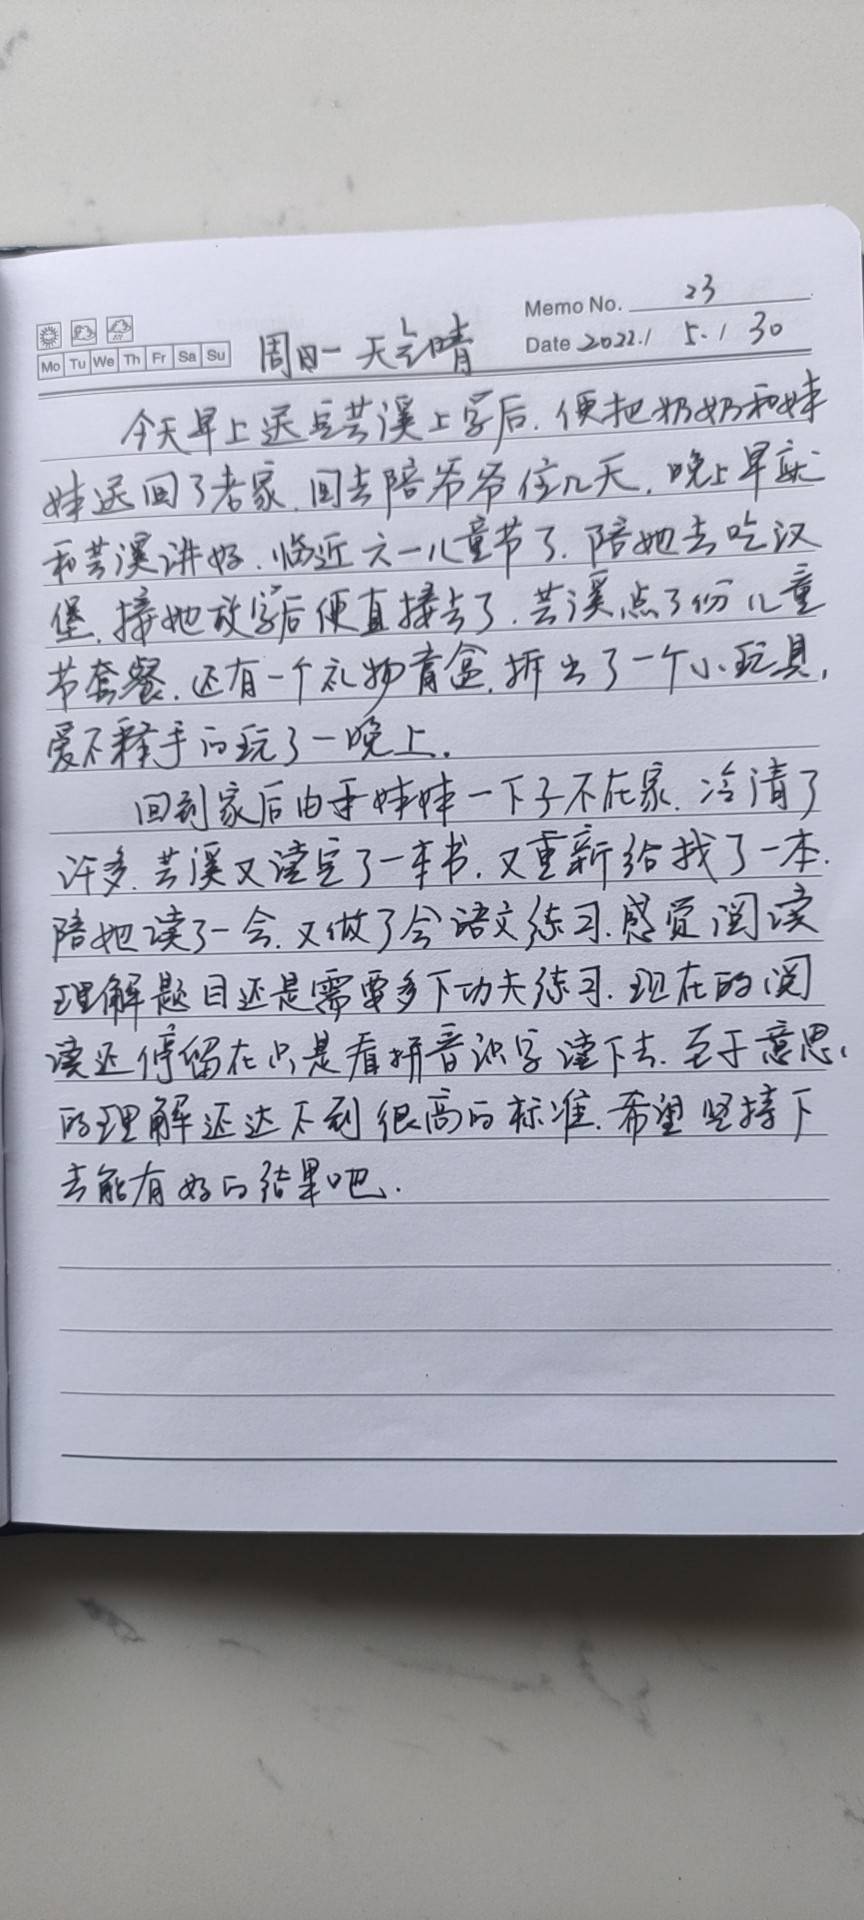 Memo No. 23
Mo Tu We Th Fr Sa Su
周日一 天气晴
Date 2022.1 5.1 30
今天早上送芸溪上学后.便把奶奶和妹
妹送回了老家.回去陪爷爷住几天.晚上早就
和芸溪讲好.临近六一儿童节了.陪她去吃汉
堡.接她放学后便直接去了.芸溪点了份儿童
节套餐.还有一个礼物盲盒.拆出了一个小玩具,
爱不释手的玩了一晚上.
回到家后由于妹妹一下子不在家.冷清了
许多.芸溪又读完了一本书.又重新给找了一本.
陪她读了一会.又做了会语文练习.感觉阅读
理解题目还是需要多下功夫练习.现在的阅
读还停留在只是看拼音识字读下去.至于意思
的理解还达不到很高的标准.希望坚持下
去能有好的结果吧.